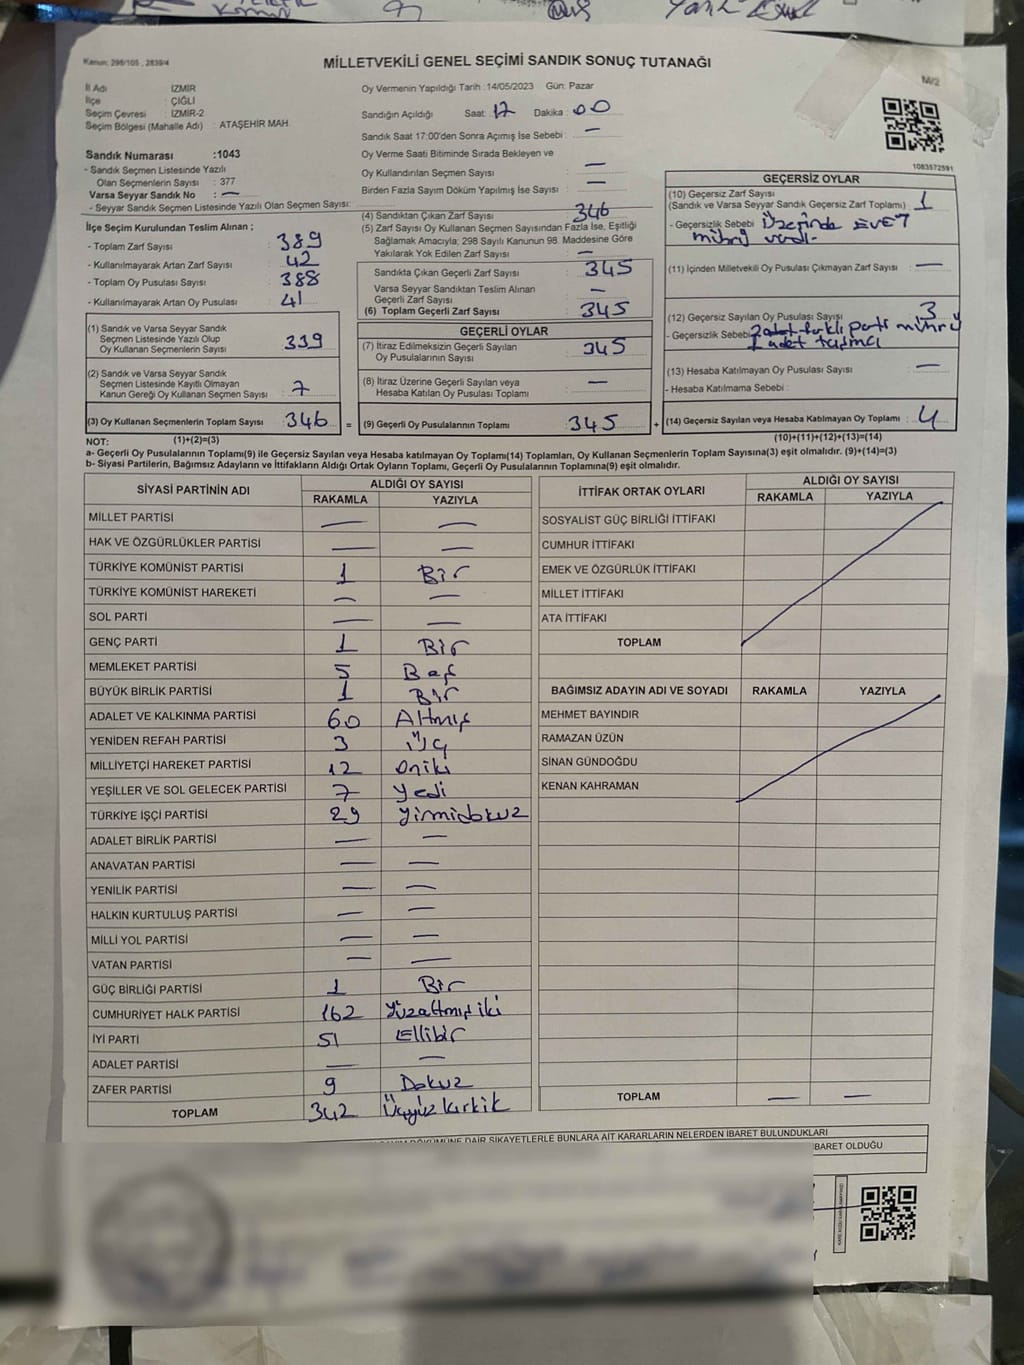 Kanun: 298/105 , 2839/4
MİLLETVEKİLİ GENEL SEÇİMİ SANDIK SONUÇ TUTANAĞI
M/2
İl Adı : İZMİR
İlçe : ÇİĞLİ
Seçim Çevresi : İZMİR-2
Seçim Bölgesi (Mahalle Adı) : ATAŞEHİR MAH.
Sandık Numarası :1043
- Sandık Seçmen Listesinde Yazılı
Olan Seçmenlerin Sayısı : 377
Varsa Seyyar Sandık No : —
- Seyyar Sandık Seçmen Listesinde Yazılı Olan Seçmen Sayısı:
Oy Vermenin Yapıldığı Tarih :14/05/2023 Gün: Pazar
Sandığın Açıldığı Saat: 17 Dakika : 00
Sandık Saat 17:00'den Sonra Açımış İse Sebebi : —
Oy Verme Saati Bitiminde Sırada Bekleyen ve
Oy Kullandırılan Seçmen Sayısı : —
Birden Fazla Sayım Döküm Yapılmış İse Sayısı : —
1083572591
İlçe Seçim Kurulundan Teslim Alınan ;
- Toplam Zarf Sayısı : 389
- Kullanılmayarak Artan Zarf Sayısı : 42
- Toplam Oy Pusulası Sayısı : 388
- Kullanılmayarak Artan Oy Pusulası : 41
(1) Sandık ve Varsa Seyyar Sandık
Seçmen Listesinde Yazılı Olup
Oy Kullanan Seçmenlerin Sayısı : 339
(2) Sandık ve Varsa Seyyar Sandık
Seçmen Listesinde Kayıtlı Olmayan
Kanun Gereği Oy Kullanan Seçmen Sayısı : 7
(3) Oy Kullanan Seçmenlerin Toplam Sayısı : 346
(4) Sandıktan Çıkan Zarf Sayısı : 346
(5) Zarf Sayısı Oy Kullanan Seçmen Sayısından Fazla İse, Eşitliği
Sağlamak Amacıyla; 298 Sayılı Kanunun 98. Maddesine Göre
Yakılarak Yok Edilen Zarf Sayısı : —
Sandıkta Çıkan Geçerli Zarf Sayısı : 345
Varsa Seyyar Sandıktan Teslim Alınan
Geçerli Zarf Sayısı : —
(6) Toplam Geçerli Zarf Sayısı : 345
GEÇERLİ OYLAR
(7) İtiraz Edilmeksizin Geçerli Sayılan
Oy Pusulalarının Sayısı : 345
(8) İtiraz Üzerine Geçerli Sayılan veya
Hesaba Katılan Oy Pusulası Toplamı : —
= (9) Geçerli Oy Pusulalarının Toplamı : 345
GEÇERSİZ OYLAR
(10) Geçersiz Zarf Sayısı
(Sandık ve Varsa Seyyar Sandık Geçersiz Zarf Toplamı) : 1
- Geçersizlik Sebebi : Üzerinde EVET
mührü vardı.
(11) İçinden Milletvekili Oy Pusulası Çıkmayan Zarf Sayısı : —
(12) Geçersiz Sayılan Oy Pusulası Sayısı : 3
- Geçersizlik Sebebi : 2 adet farklı parti mührü
1 adet taşmcı
(13) Hesaba Katılmayan Oy Pusulası Sayısı : —
- Hesaba Katılmama Sebebi :
+ (14) Geçersiz Sayılan veya Hesaba Katılmayan Oy Toplamı : 4
NOT: (1)+(2)=(3)
(10)+(11)+(12)+(13)=(14)
a- Geçerli Oy Pusulaları Toplamı(9) ile Geçersiz Sayılan veya Hesaba katılmayan Oy Toplamı(14) Toplamları, Oy Kullanan Seçmenlerin Toplam Sayısına(3) eşit olmalıdır. (9)+(14)=(3)
b- Siyasi Partilerin, Bağımsız Adayların ve İttifakların Aldığı Ortak Oyların Toplamı, Geçerli Oy Pusulalarının Toplamına(9) eşit olmalıdır.
SİYASİ PARTİNİN ADI ALDIĞI OY SAYISI
RAKAMLA YAZIYLA
MİLLET PARTİSİ — —
HAK VE ÖZGÜRLÜKLER PARTİSİ — —
TÜRKİYE KOMÜNİST PARTİSİ 1 Bir
TÜRKİYE KOMÜNİST HAREKETİ — —
SOL PARTİ — —
GENÇ PARTİ 1 Bir
MEMLEKET PARTİSİ 5 Beş
BÜYÜK BİRLİK PARTİSİ 1 Bir
ADALET VE KALKINMA PARTİSİ 60 Altmış
YENİDEN REFAH PARTİSİ 3 Üç
MİLLİYETÇİ HAREKET PARTİSİ 12 Oniki
YEŞİLLER VE SOL GELECEK PARTİSİ 7 Yedi
TÜRKİYE İŞÇİ PARTİSİ 29 Yirmidokuz
ADALET BİRLİK PARTİSİ — —
ANAVATAN PARTİSİ — —
YENİLİK PARTİSİ — —
HALKIN KURTULUŞ PARTİSİ — —
MİLLİ YOL PARTİSİ — —
VATAN PARTİSİ — —
GÜÇ BİRLİĞİ PARTİSİ 1 Bir
CUMHURİYET HALK PARTİSİ 162 Yüzaltmışiki
İYİ PARTİ 51 Ellibir
ADALET PARTİSİ — —
ZAFER PARTİSİ 9 Dokuz
TOPLAM 342 Üçyüzkırkik
İTTİFAK ORTAK OYLARI ALDIĞI OY SAYISI
RAKAMLA YAZIYLA
SOSYALİST GÜÇ BİRLİĞİ İTTİFAKI
CUMHUR İTTİFAKI
EMEK VE ÖZGÜRLÜK İTTİFAKI
MİLLET İTTİFAKI
ATA İTTİFAKI
TOPLAM
BAĞIMSIZ ADAYIN ADI VE SOYADI RAKAMLA YAZIYLA
MEHMET BAYINDIR
RAMAZAN ÜZÜN
SİNAN GÜNDOĞDU
KENAN KAHRAMAN
TOPLAM — —
DÖKÜMÜNE DAİR ŞİKAYETLERLE BUNLARA AİT KARARLARIN NELERDEN İBARET BULUNDUKLARI
İBARET OLDUĞU